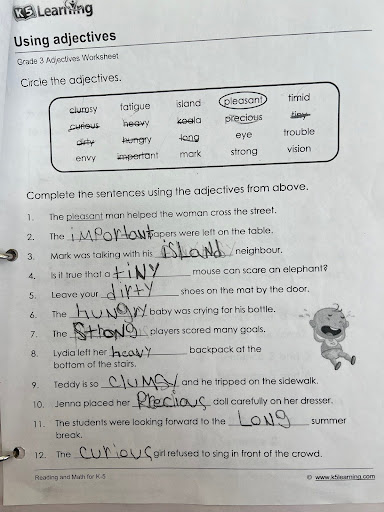 K5 Learning
Using adjectives
Grade 3 Adjectives Worksheet
Circle the adjectives.
clumsy fatigue island pleasant timid
curious heavy koala precious tiny
dirty hungry long eye trouble
envy important mark strong vision
Complete the sentences using the adjectives from above.
1. The pleasant man helped the woman cross the street.
2. The important papers were left on the table.
3. Mark was talking with his island neighbour.
4. Is it true that a tiny mouse can scare an elephant?
5. Leave your dirty shoes on the mat by the door.
6. The hungry baby was crying for his bottle.
7. The strong players scored many goals.
8. Lydia left her heavy backpack at the
bottom of the stairs.
9. Teddy is so clumsy and he tripped on the sidewalk.
10. Jenna placed her Precious doll carefully on her dresser.
11. The students were looking forward to the Long summer
break.
12. The curious girl refused to sing in front of the crowd.
Reading and Math for K-5 © www.k5learning.com